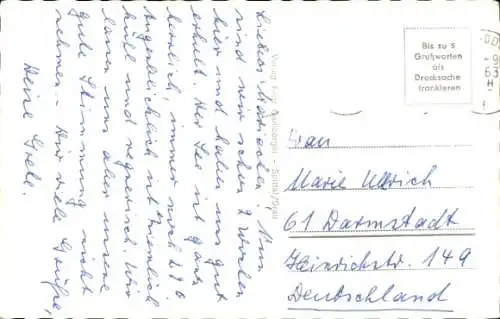 Liebes Mariechen! Nun
sind wir schon 2 Wochen
hier und haben uns gut
erholt. Der See ist ganz
herrlich, immer noch 20
Augenblicklich ist ziemlich
kühl und regnerisch. Wir
lassen uns aber unsere
gute Stimmung nicht
nehmen. Dir viele Grüße,
Deine Grete.
Spittal/Drau
Bis zu 5
Grußworten
als
Drucksache
frankieren
63
Frau
Marie Ulrich
61 Darmstadt
Heinrichstr. 149
Deutschland